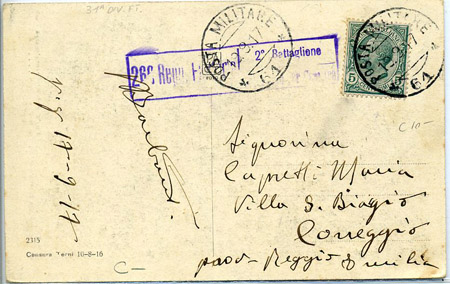 31ª DIV. FT.
POSTA MILITARE
61
266 Regg. 2° Battaglione
POSTA MILITARE
61
5
C10-
17-9-17
Signorina
Capretti Maria
Villa S. Biagio
Correggio
prov. Reggio Emilia
2315
Censura Terni 16-8-16
C-